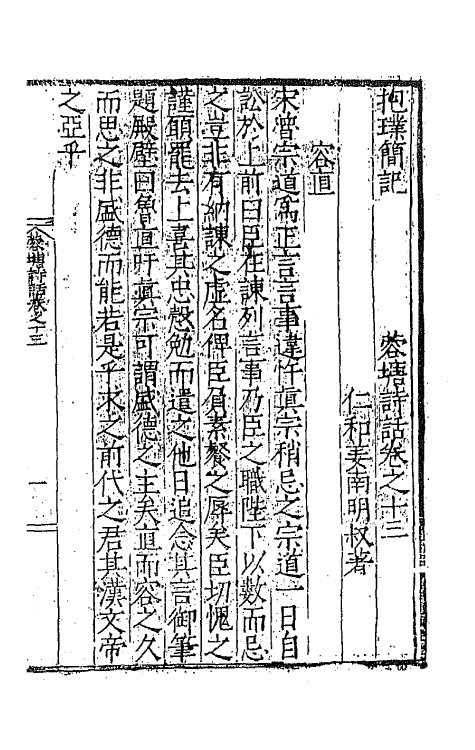 抱璞簡記 蓉塘詩話卷之十三
仁和姜南明叔著
容直
宋曾宗道為正言言事違忤真宗稍忌之宗道一日自
訟於上前曰臣在諫列言事乃臣之職陛下以數而忌
之豈非有納諫之虛名俾臣負素餐之辱矣臣切愧之
謹願罷去上喜其忠慤勉而遣之他日追念其言御筆
題殿壁曰魯直吁真宗可謂盛德之主矣直而容之久
而思之非盛德而能若是乎求之前代之君其漢文帝
之亞乎
蓉塘詩話卷之十三
一